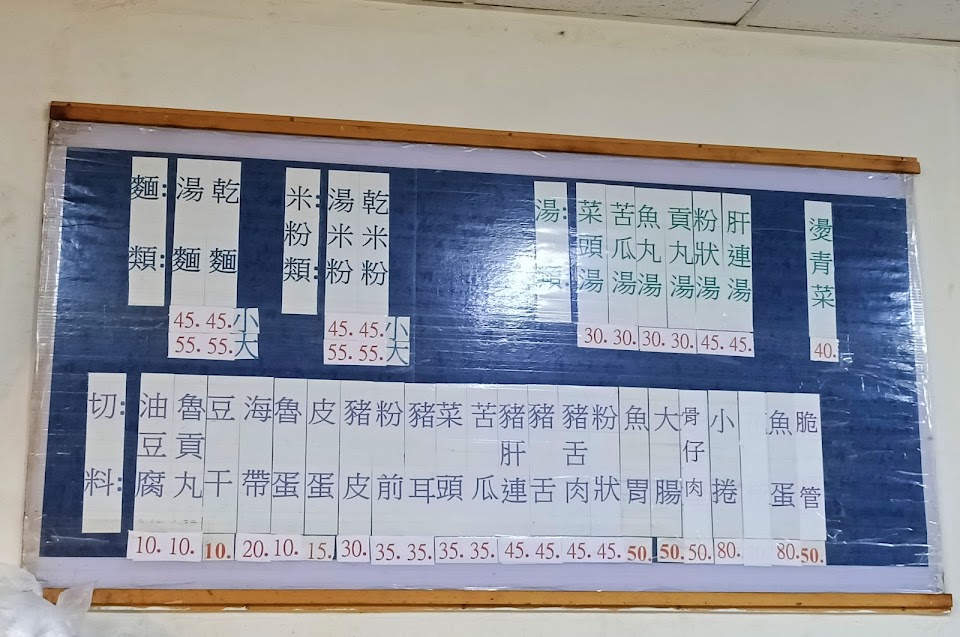 麵類:
湯麵 45. 55.
乾麵 45. 55.
小
大
米粉類:
湯米粉 45. 55.
乾米粉 45. 55.
小
大
湯類:
菜頭湯 30.
苦瓜湯 30.
魚丸湯 30.
貢丸湯 30.
粉狀湯 45.
肝連湯 45.
燙青菜 40.
切料:
油豆腐 10.
魯貢丸 10.
豆干 10.
海帶 20.
魯蛋 10.
皮蛋 15.
豬皮 30.
粉前 35.
豬耳 35.
菜頭 35.
苦瓜 35.
豬肝連 45.
豬舌 45.
豬舌肉 45.
粉狀 45.
魚胃 50.
大腸 50.
骨仔肉 50.
小捲 80.
魚蛋 80.
脆管 50.